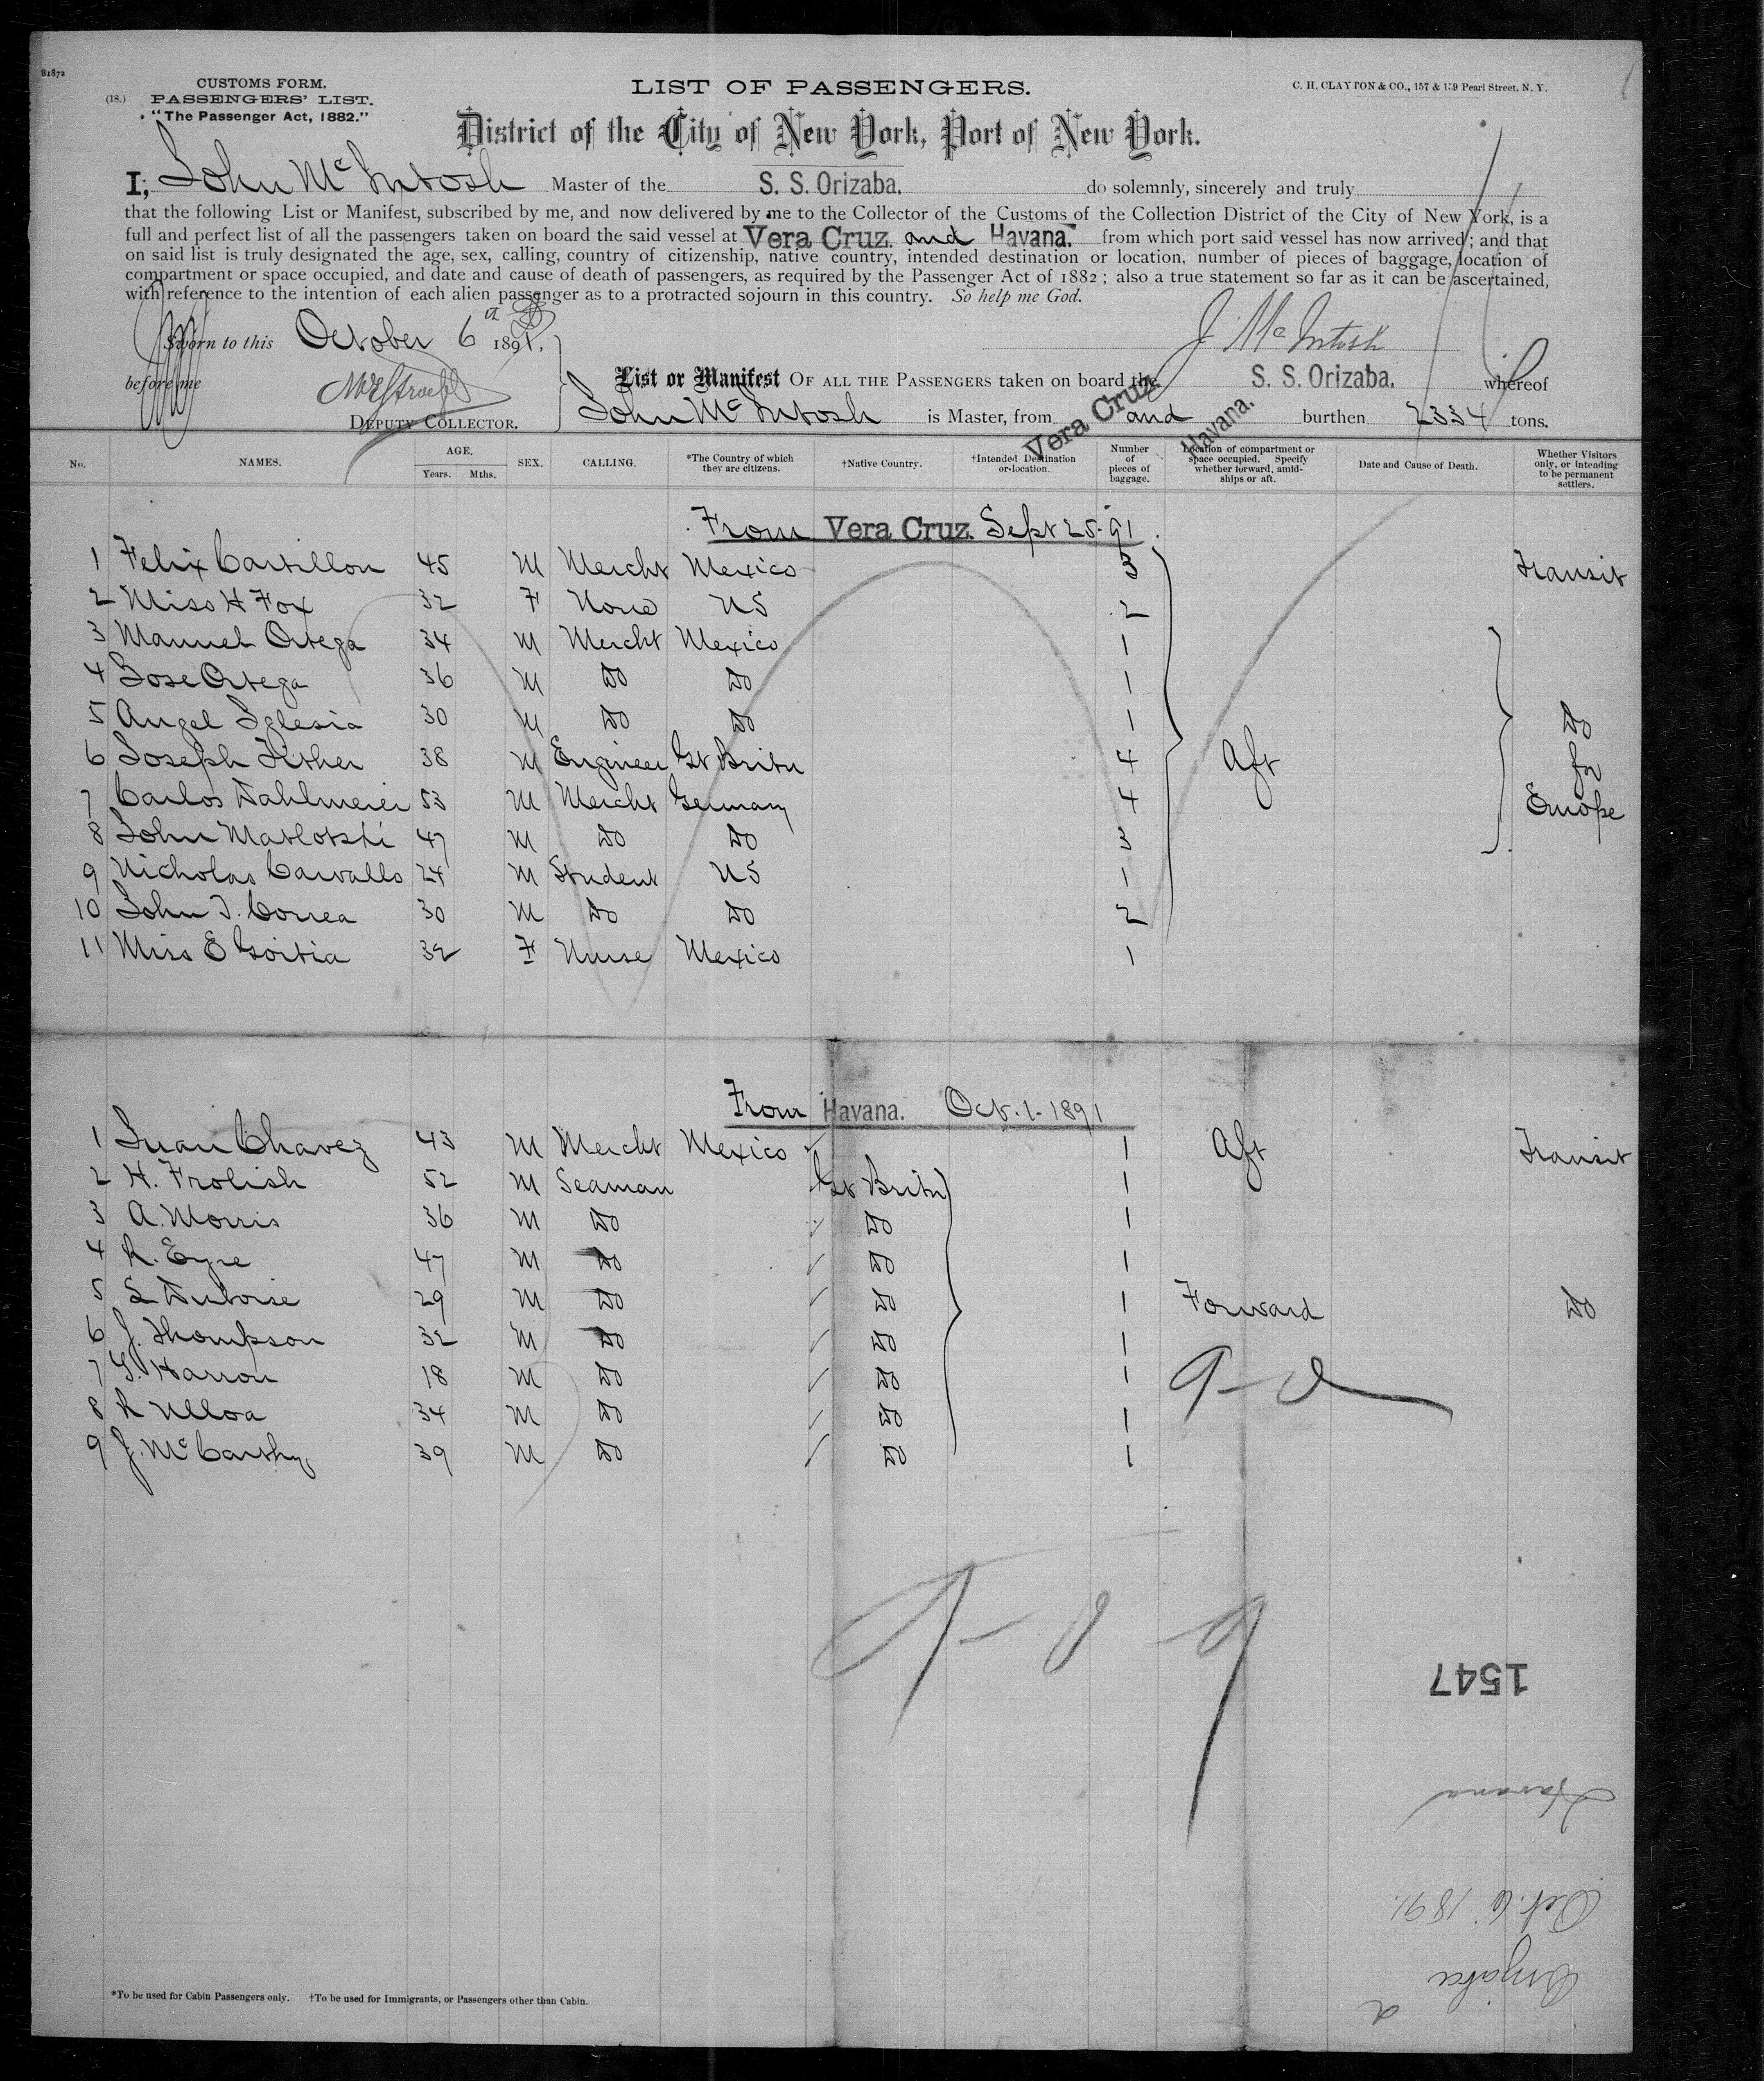 81872
CUSTOMS FORM.
(18.) PASSENGERS' LIST.
"The Passenger Act, 1882."
LIST OF PASSENGERS.
C. H. CLAYTON & CO., 157 & 159 Pearl Street, N. Y.
District of the City of New York, Port of New York.
I, John McIntosh Master of the S. S. Orizaba. do solemnly, sincerely and truly
that the following List or Manifest, subscribed by me, and now delivered by me to the Collector of the Customs of the Collection District of the City of New York, is a
full and perfect list of all the passengers taken on board the said vessel at Vera Cruz. and Havana. from which port said vessel has now arrived; and that
on said list is truly designated the age, sex, calling, country of citizenship, native country, intended destination or location, number of pieces of baggage, location of
compartment or space occupied, and date and cause of death of passengers, as required by the Passenger Act of 1882; also a true statement so far as it can be ascertained,
with reference to the intention of each alien passenger as to a protracted sojourn in this country. So help me God.
Sworn to this October 6th 1891. J. McIntosh
before me
DEPUTY COLLECTOR.
List or Manifest OF ALL THE PASSENGERS taken on board the S. S. Orizaba. whereof
John McIntosh is Master, from Vera Cruz and Havana. burthen 2334 tons.
No. NAMES. AGE. Years. Mths. SEX. CALLING. *The Country of which they are citizens. †Native Country. †Intended Destination or location. Number of pieces of baggage. Location of compartment or space occupied. Specify whether forward, amidships or aft. Date and Cause of Death. Whether Visitors only, or intending to be permanent settlers.
From Vera Cruz. Sept 25-91.
1 Felix Castillon 45 M Mercht Mexico 3 Transit
2 Miss H Fox 32 F None US 2
3 Manuel Ortega 34 M Mercht Mexico 1
4 Jose Ortega 36 M Do Do 1
5 Angel Iglesia 30 M Do Do 1 Do
6 Joseph Fisher 38 M Engineer Gt Britn 4 Aft for
7 Carlos Dahlmeier 53 M Mercht Germany 4 Europe
8 John Matlotski 47 M Do Do 3
9 Nicholas Carvallo 24 M Student US 1
10 John J. Correa 30 M Do Do 2
11 Miss E Goitia 32 F Nurse Mexico 1
From Havana. Oct. 1-1891
1 Juan Chavez 43 M Mercht Mexico 1 Aft Transit
2 H. Frolish 52 M Seaman Gt Britn 1
3 A. Morris 36 M Do Do 1
4 R. Eyre 47 M Do Do 1
5 L Duboise 29 M Do Do 1 Forward Do
6 J. Thompson 32 M Do Do 1
7 G. Harron 18 M Do Do 1
8 R Ulloa 34 M Do Do 1
9 J. McCarthy 39 M Do Do 1
9-0-9
1547
Havana
Oct. 6. 1891.
Orizaba
*To be used for Cabin Passengers only. †To be used for Immigrants, or Passengers other than Cabin.